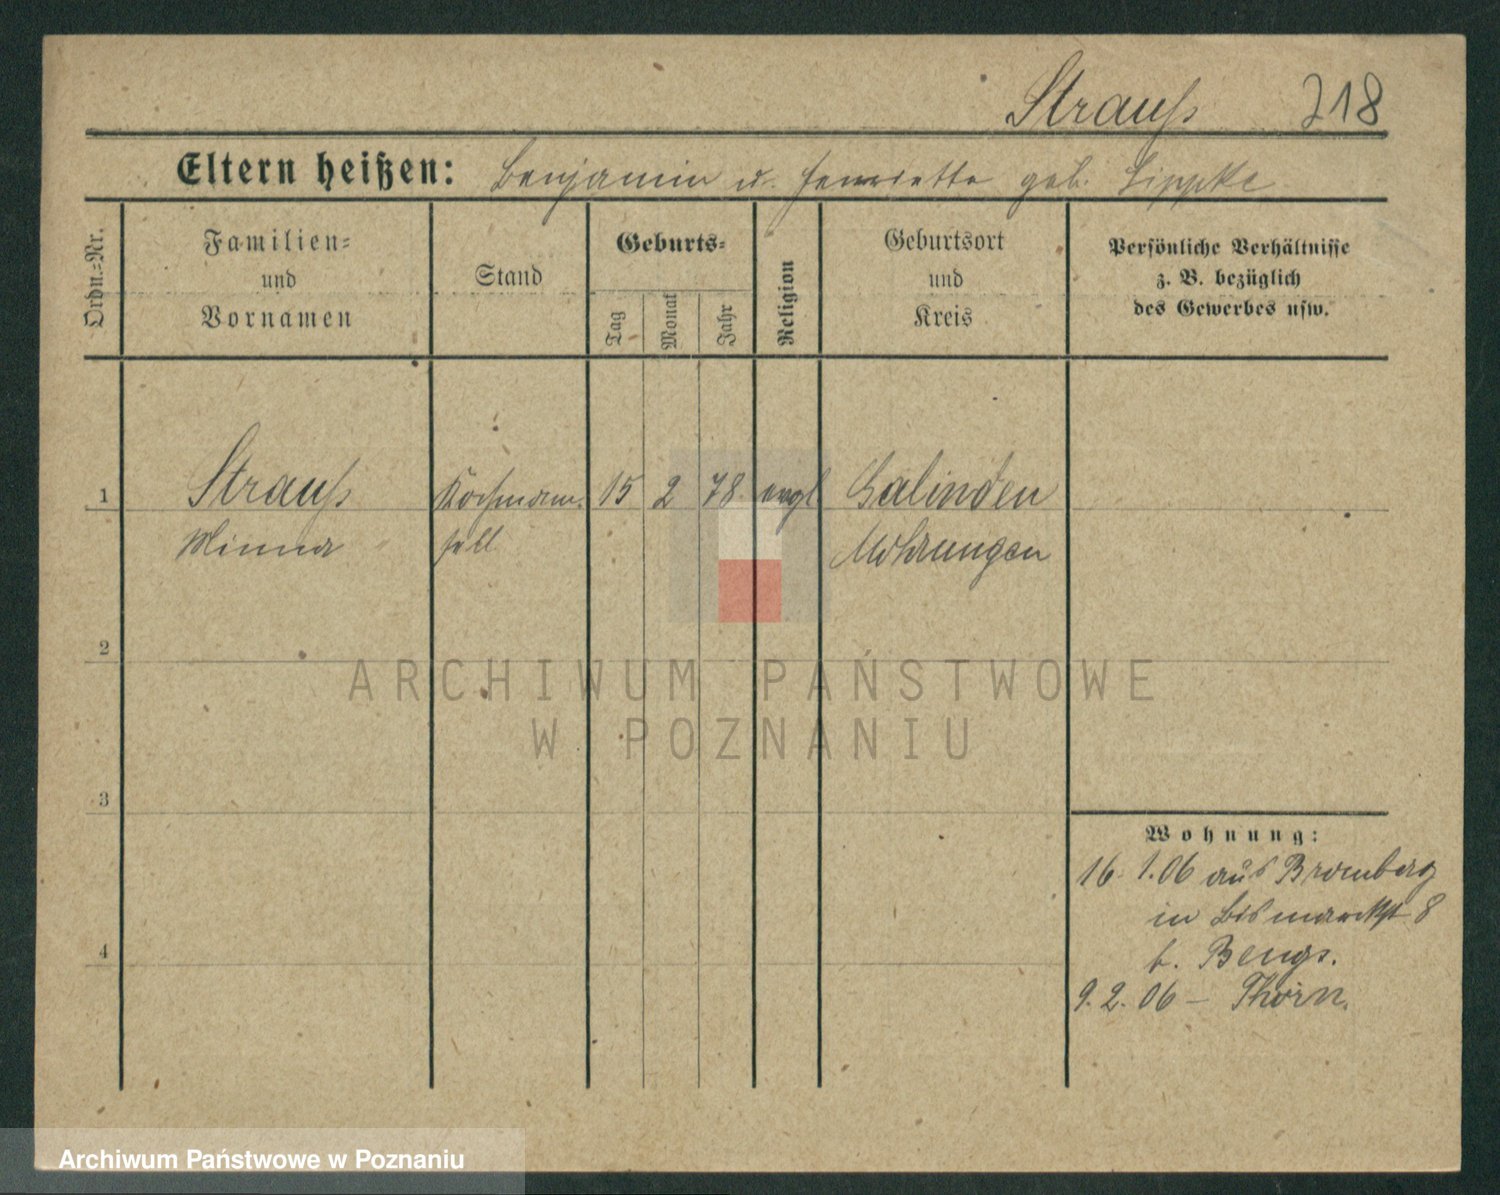 Strauß 718
Eltern heißen: Benjamin u. Henriette geb. Lippke
Ordn.=Nr.
Familien=
und
Vornamen
Stand
Geburts=
Tag
Monat
Jahr
Religion
Geburtsort
und
Kreis
Persönliche Verhältnisse
z. B. bezüglich
des Gewerbes usw.
1 Strauß Kochmam= 15 2 78 evgl Galinden
Minna sell Mohrungen
2
ARCHIWUM PAŃSTWOWE
W POZNANIU
3
Wohnung:
16. 1.06 aus Bromberg
in Bismarckst 8
b. Bengs.
4
9.2.06 – Thorn.
Archiwum Państwowe w Poznaniu